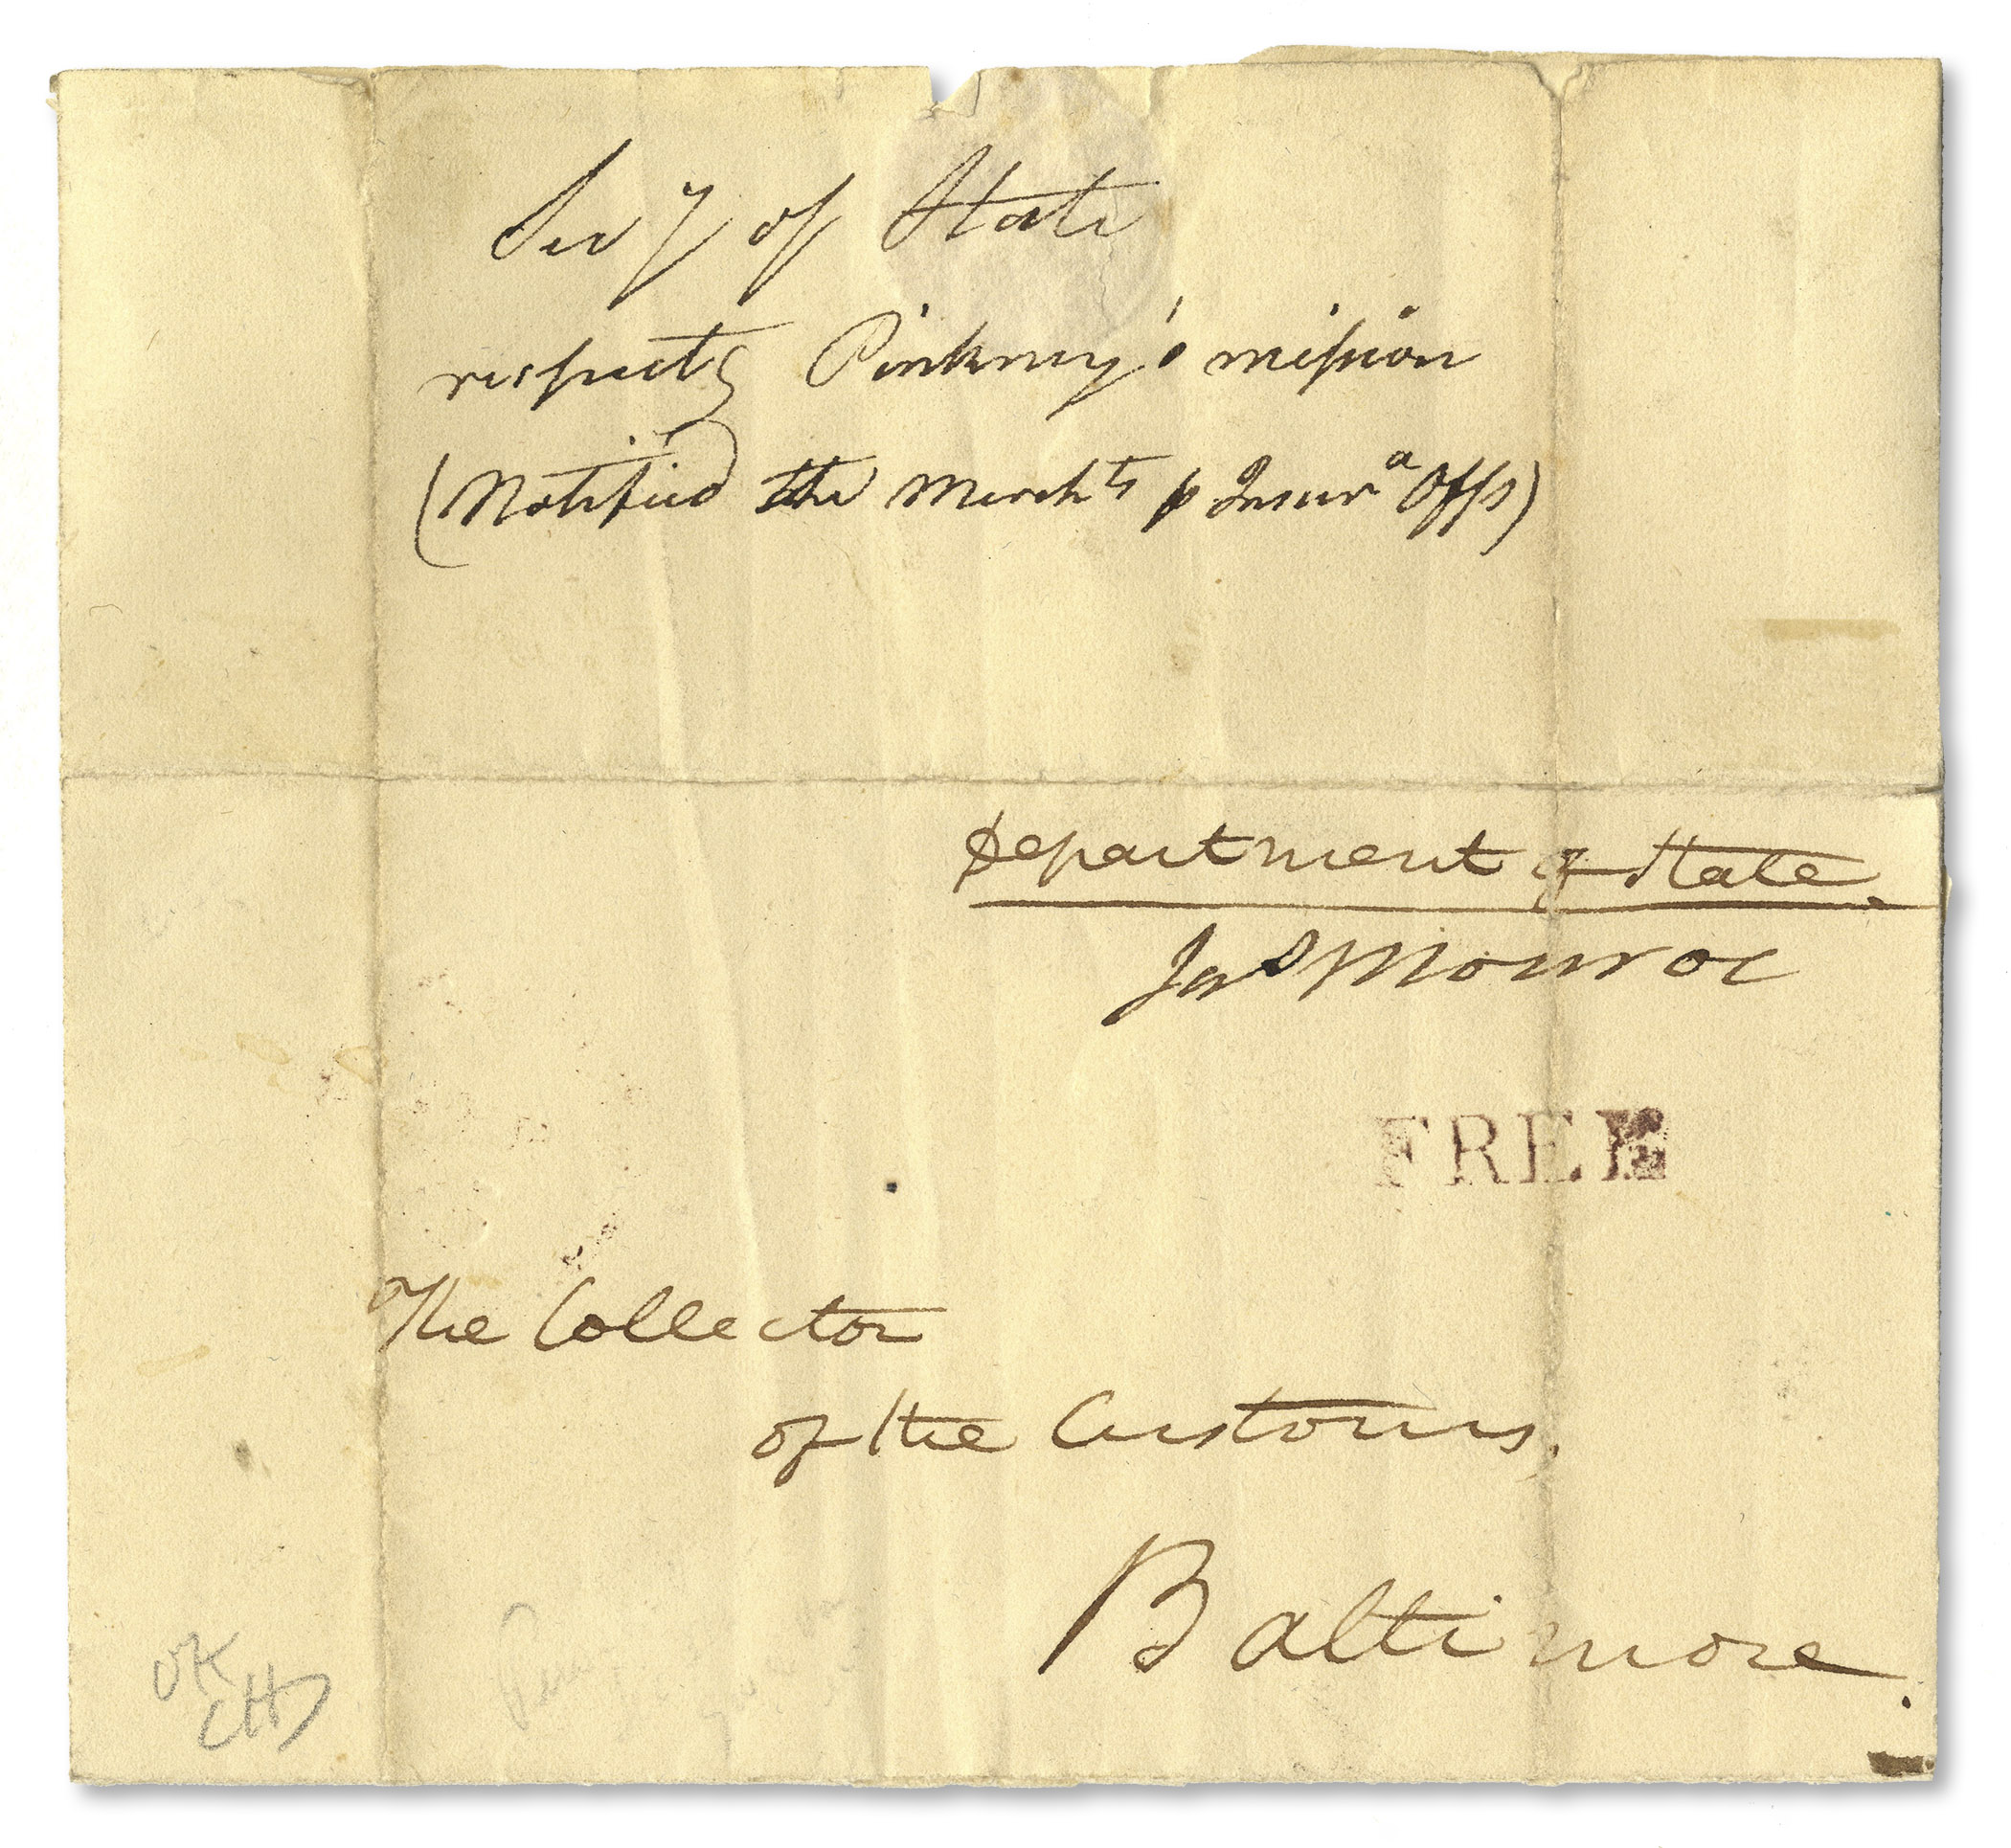 Secy of State
respectg Pinkney's mission
(Notified the Merchts & Insura Offs)
Department of State.
Jas Monroe
FREE
The Collector
of the Customs,
Baltimore.
OK